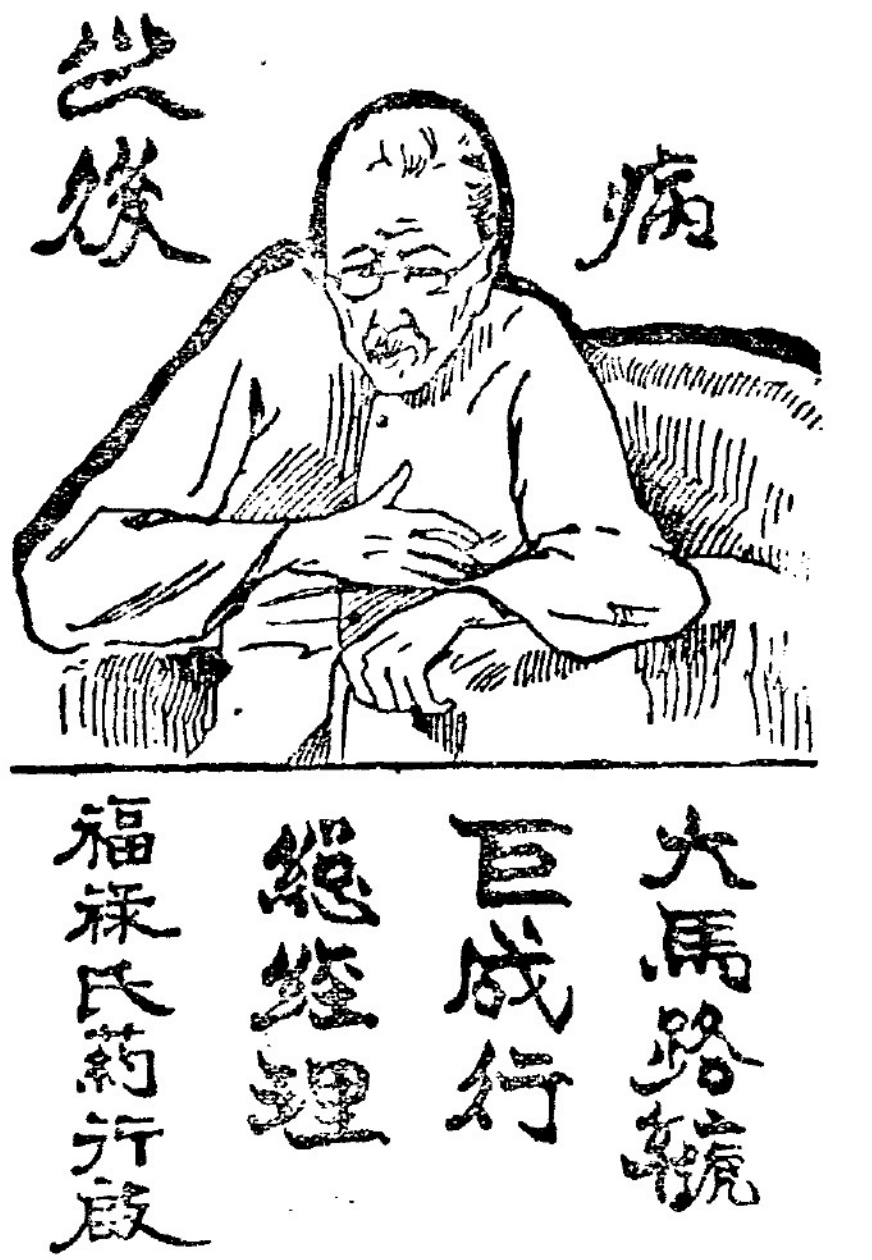 病
之後
大馬路
巨成行
總經理
福祿氏葯行啟